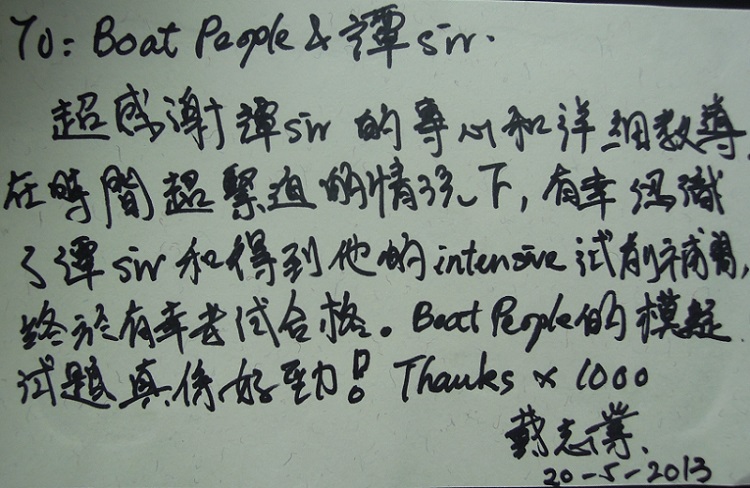 To: Boat People & 譚 sir.
超感謝譚 sir 的專心和详細教導,
在時間超緊迫的情況下,有幸認識
了譚 sir 和得到他的 intensive 試前補習,
終於有幸考试合格。Boat People 的模擬
試題真係好勁!! Thanks × 1000
戴志業.
20-5-2013